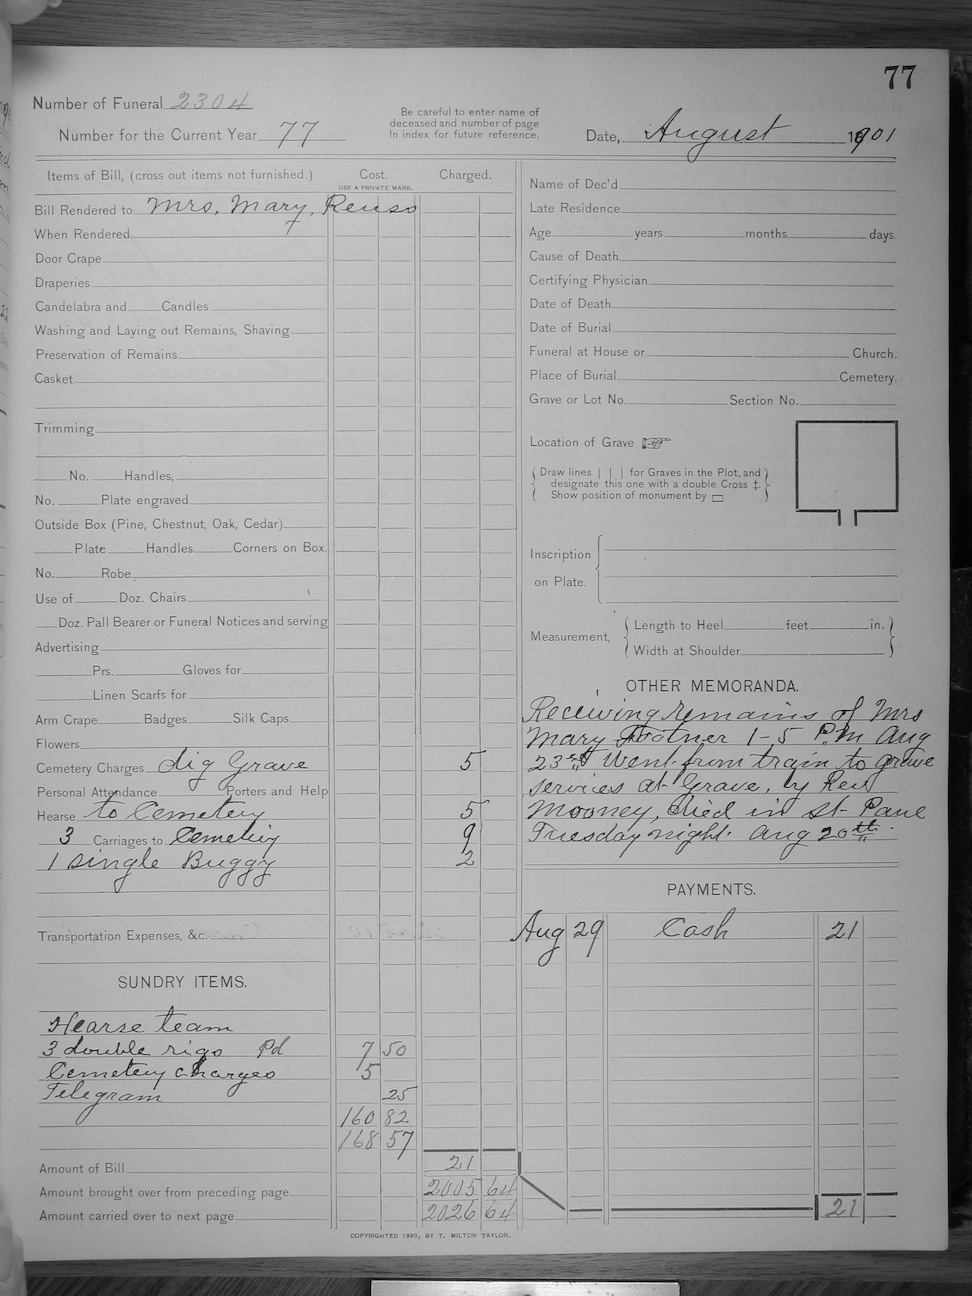 77
Number of Funeral 2304
Number for the Current Year 77
Be careful to enter name of
deceased and number of page
in index for future reference.
Date, August 1901
Items of Bill, (cross out items not furnished.) Cost. Charged.
USE A PRIVATE MARK.
Bill Rendered to Mrs, Mary, Reuss
When Rendered
Door Crape
Draperies
Candelabra and Candles
Washing and Laying out Remains, Shaving
Preservation of Remains
Casket
Trimming
No. Handles,
No. Plate engraved
Outside Box (Pine, Chestnut, Oak, Cedar)
Plate Handles Corners on Box.
No. Robe
Use of Doz. Chairs
Doz. Pall Bearer or Funeral Notices and serving
Advertising
Prs. Gloves for
Linen Scarfs for
Arm Crape Badges Silk Caps
Flowers
Cemetery Charges dig Grave 5
Personal Attendance Porters and Help
Hearse to Cemetery 5
3 Carriages to Cemetery 9
1 single Buggy 2
Transportation Expenses, &c.
SUNDRY ITEMS.
Hearse team
3 double rigs Pd 7 50
Cemetery charges 5
Telegram 25
160 82
168 57
Amount of Bill 21
Amount brought over from preceding page 2005 64
Amount carried over to next page 2026 64
Name of Dec'd
Late Residence
Age years months days.
Cause of Death
Certifying Physician
Date of Death
Date of Burial
Funeral at House or Church.
Place of Burial Cemetery.
Grave or Lot No. Section No.
Location of Grave
Draw lines | | | for Graves in the Plot, and
designate this one with a double Cross ‡.
Show position of monument by
Inscription
on Plate.
Measurement, Length to Heel feet in.
Width at Shoulder
OTHER MEMORANDA.
Receiving remains of Mrs
Mary Footner 1-5 P.M Aug
23rd Went from train to grave
services at Grave, by Rev
Mooney, Died in St. Paul
Tuesday night. Aug 20th.
PAYMENTS.
Aug 29 Cash 21
21
COPYRIGHTED 1890, BY T. MILTON TAYLOR.